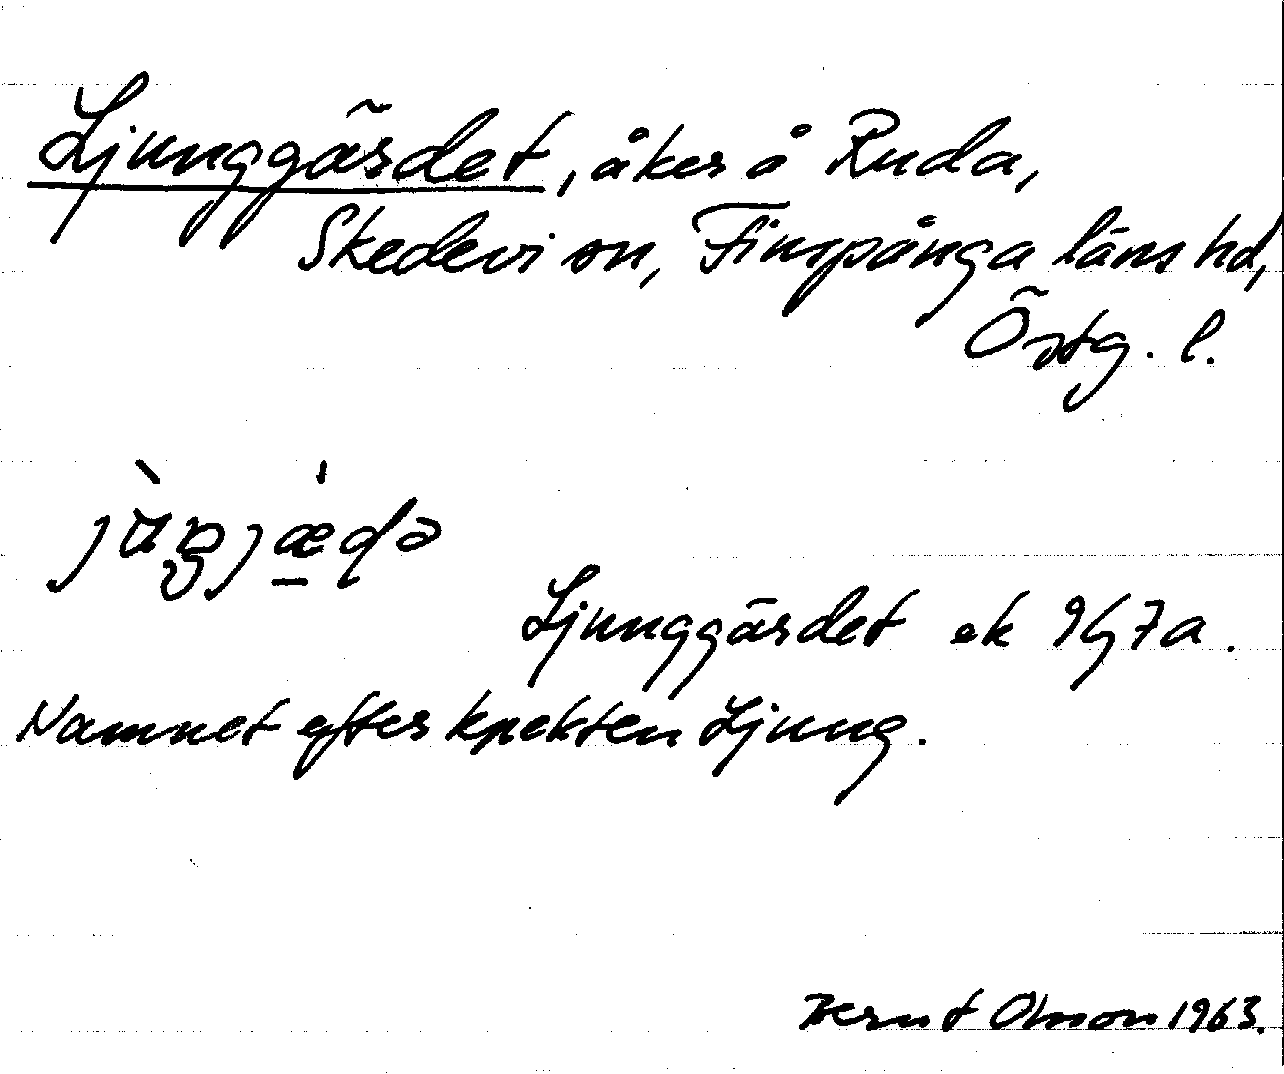 Ljunggärdet, åker å Ruda,
Skedevi sn, Finspånga läns hd,
Östg. l.
Ljunggärdet ek 9G7a.
Namnet efter knekten Ljung.
Bernt Olsson 1963.